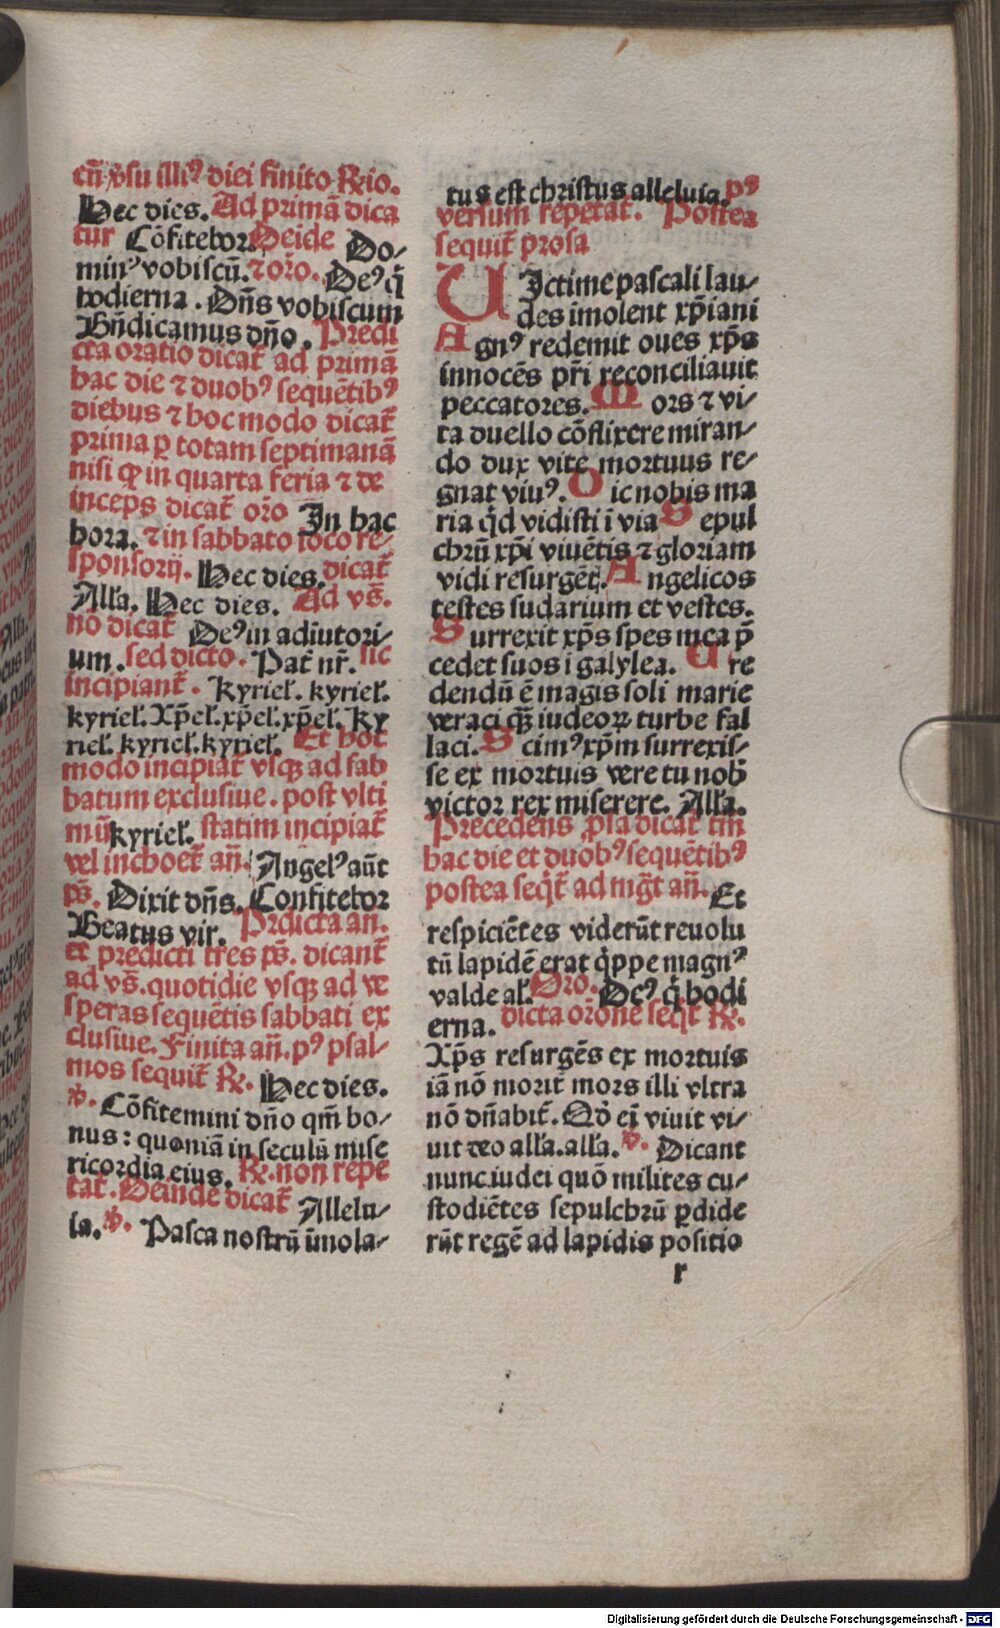 cū v̄su illiꝰ diei finito Rio.
Hec dies. Ad primā dica
tur Cōfitebor Deide Do⸗
minꝰ vobiscū. ⁊ oro. Deꝰ q̄
hodierna. Dn̄s vobiscum
Bn̄dicamus dn̄o. Predi
cta oratio dicat̄ ad primā
hac die ⁊ duobꝰ sequētibꝰ
diebus ⁊ hoc modo dicat̄
prima ꝑ totam septimanā
nisi ꝙ in quarta feria ⁊ de
inceps dicat̄ oro In hac
hora. ⁊ in sabbato loco re⸗
sponsorij. Hec dies. dicat̄
Alla. Hec dies. Ad vs̄.
nō dicat̄ Deꝰ in adiutori⸗
um. sed dicto. Pat̄ nr̄. sic
incipiant̄. kyriel. kyriel.
kyriel. Xp̄el. xp̄el. xp̄el. Ky
riel. kyriel. kyriel. Et hoc
modo incipiat̄ vsqꝫ ad sab
batum exclusiue. post vlti
mū kyriel. statim incipiat̄
vel inchoet̄ an̄. Angelꝰ aūt
ps̄. Dixit dn̄s. Confitebor
Beatus vir. Prdicta an.
et predicti tres ps̄. dicant̄
ad vs̄. quotidie vsqꝫ ad ve
speras sequētis sabbati ex
clusiue. Finita an̄. pꝰ psal⸗
mos sequit̄ ℟. Hec dies.
℣. Cōfitemini dn̄o qm̄ bo⸗
nus: quoniā in seculū mise
ricordia eius. ℟. non repe
tat̄. Deinde dicat̄ Allelu⸗
ia. ℣. Pasca nostrū īmola⸗
tus est christus alleluia. pꝰ
versum repetat̄. Postea
sequit̄ prosa
VIctime pascali lau⸗
des imolent xp̄iani
Agnꝰ redemit oues xp̄s
innocēs pr̄i reconciliauit
peccatores. Mors ⁊ vi⸗
ta duello cōflixere miran⸗
do dux vite mortuus re⸗
gnat viuꝰ. Dic nobis ma
ria q̇d vidisti ī via Sepul
chrū xp̄i viuētis ⁊ gloriam
vidi resurgēt. Angelicos
testes sudarium et vestes.
Surrexit xp̄s spes mea p̄
cedet suos i galylea. Cre
dendū ē magis soli marie
veraci qꝫ iudeoꝝ turbe fal
laci. Scimꝰ xp̄m surrexis⸗
se ex mortuis vere tu nob̄
victor rex miserere. Alla.
Precedens p̄sa dicat̄ tm̄
hac die et duobꝰ sequētibꝰ
postea seqt̄ ad mg̅t an̄. Et
respiciētes viderūt reuolu
tū lapidē erat q̇ppe magnꝰ
valde al. Oro. Deꝰ q̄ hodi
erna. dicta oröne seqt̄ ℟.
Xp̄s resurgēs ex mortuis
iā nō morit̄ mors illi vltra
nō dn̄abit̄. Qd̓ eī viuit vi⸗
uit deo alla. alla. ℣. Dicant
nunc iudei quō milites cu⸗
stodiētes sepulchrū ꝑdide
rūt regē ad lapidis positio
r
Digitalisierung gefördert durch die Deutsche Forschungsgemeinschaft - DFG